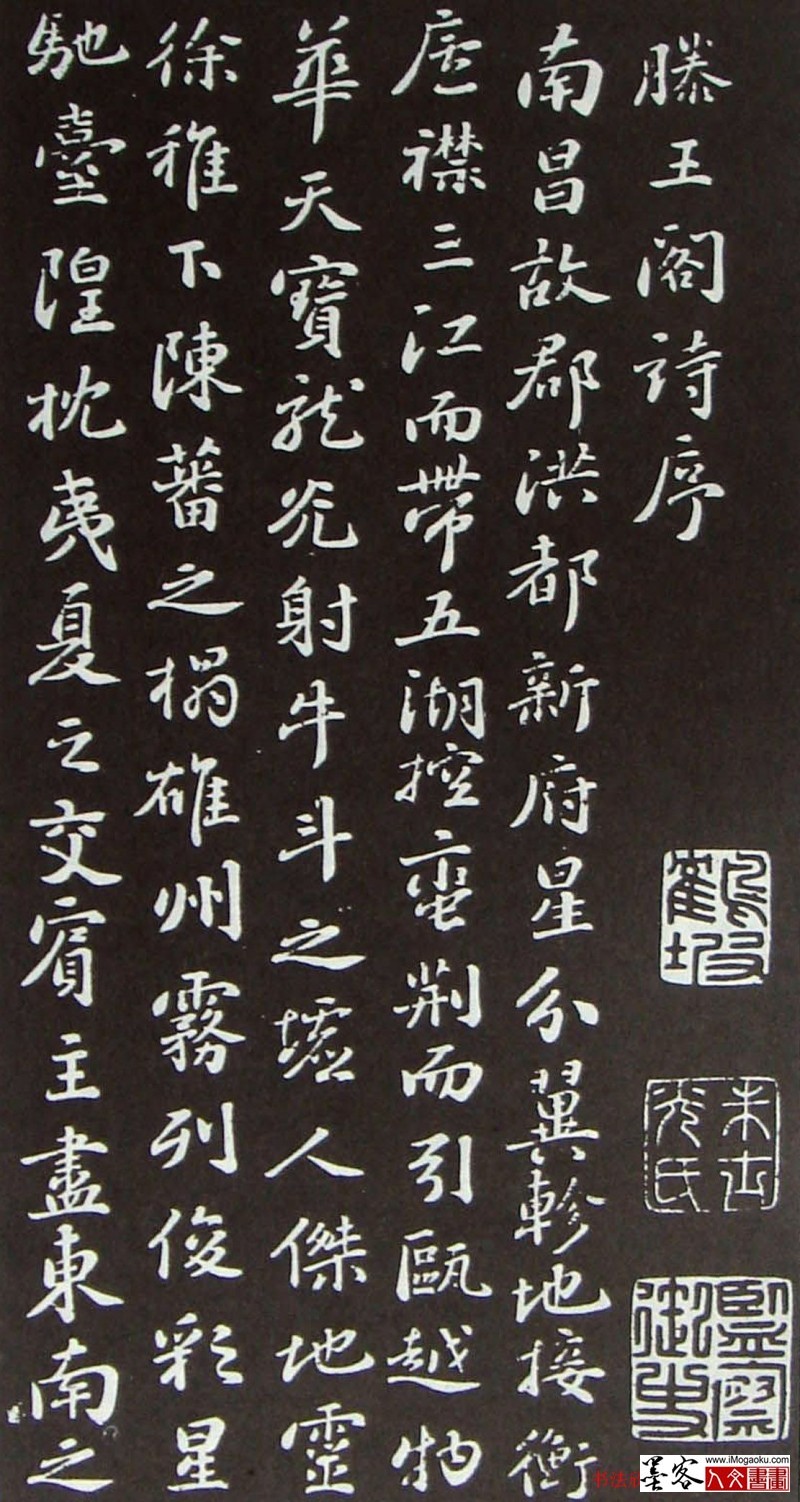 滕王閣詩序
南昌故郡洪都新府星分翼軫地接衡
廬襟三江而帶五湖控蛮荆而引甌越物
華天寶龍光射牛斗之墟人傑地靈
徐稚下陳蕃之榻雄州霧列俊彩星
馳臺隍枕夷夏之交賓主盡東南之
監察御史
墨客
www.iMogaoku.com
人文書畫